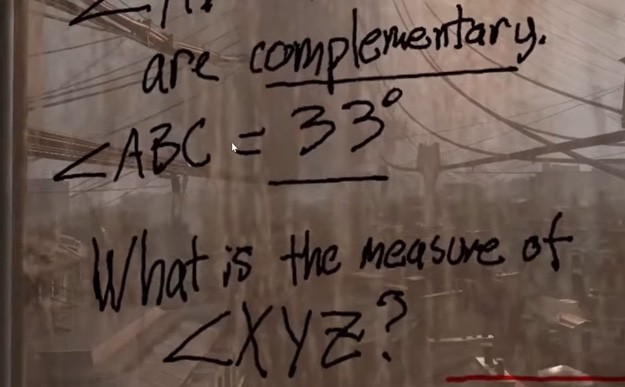 are complementary.
∠ABC = 33°
What is the measure of
∠XYZ?